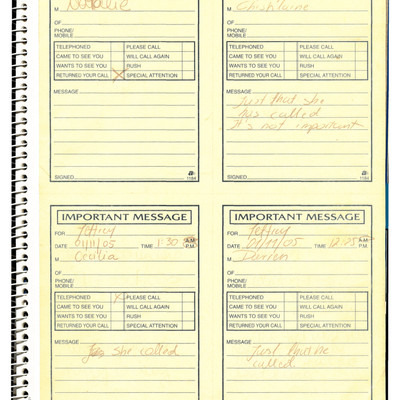 M Natalie
OF
PHONE/
MOBILE
TELEPHONED PLEASE CALL
CAME TO SEE YOU WILL CALL AGAIN
WANTS TO SEE YOU RUSH
RETURNED YOUR CALL X SPECIAL ATTENTION
MESSAGE
SIGNED 1184
M
OF
PHONE/
MOBILE
TELEPHONED PLEASE CALL
CAME TO SEE YOU WILL CALL AGAIN
WANTS TO SEE YOU RUSH
RETURNED YOUR CALL SPECIAL ATTENTION
MESSAGE
Just that she
has called
It's not important
SIGNED 1184
IMPORTANT MESSAGE
FOR Jeffrey
DATE 01/11/05 TIME 1:30 A.M. P.M.
M Cecilia
OF
PHONE/
MOBILE
TELEPHONED X PLEASE CALL
CAME TO SEE YOU WILL CALL AGAIN
WANTS TO SEE YOU RUSH
RETURNED YOUR CALL SPECIAL ATTENTION
MESSAGE
she called
IMPORTANT MESSAGE
FOR Jeffrey
DATE 01/11/05 TIME 12:25 A.M. P.M.
M
OF
PHONE/
MOBILE
TELEPHONED PLEASE CALL
CAME TO SEE YOU WILL CALL AGAIN
WANTS TO SEE YOU RUSH
RETURNED YOUR CALL SPECIAL ATTENTION
MESSAGE
Just
called